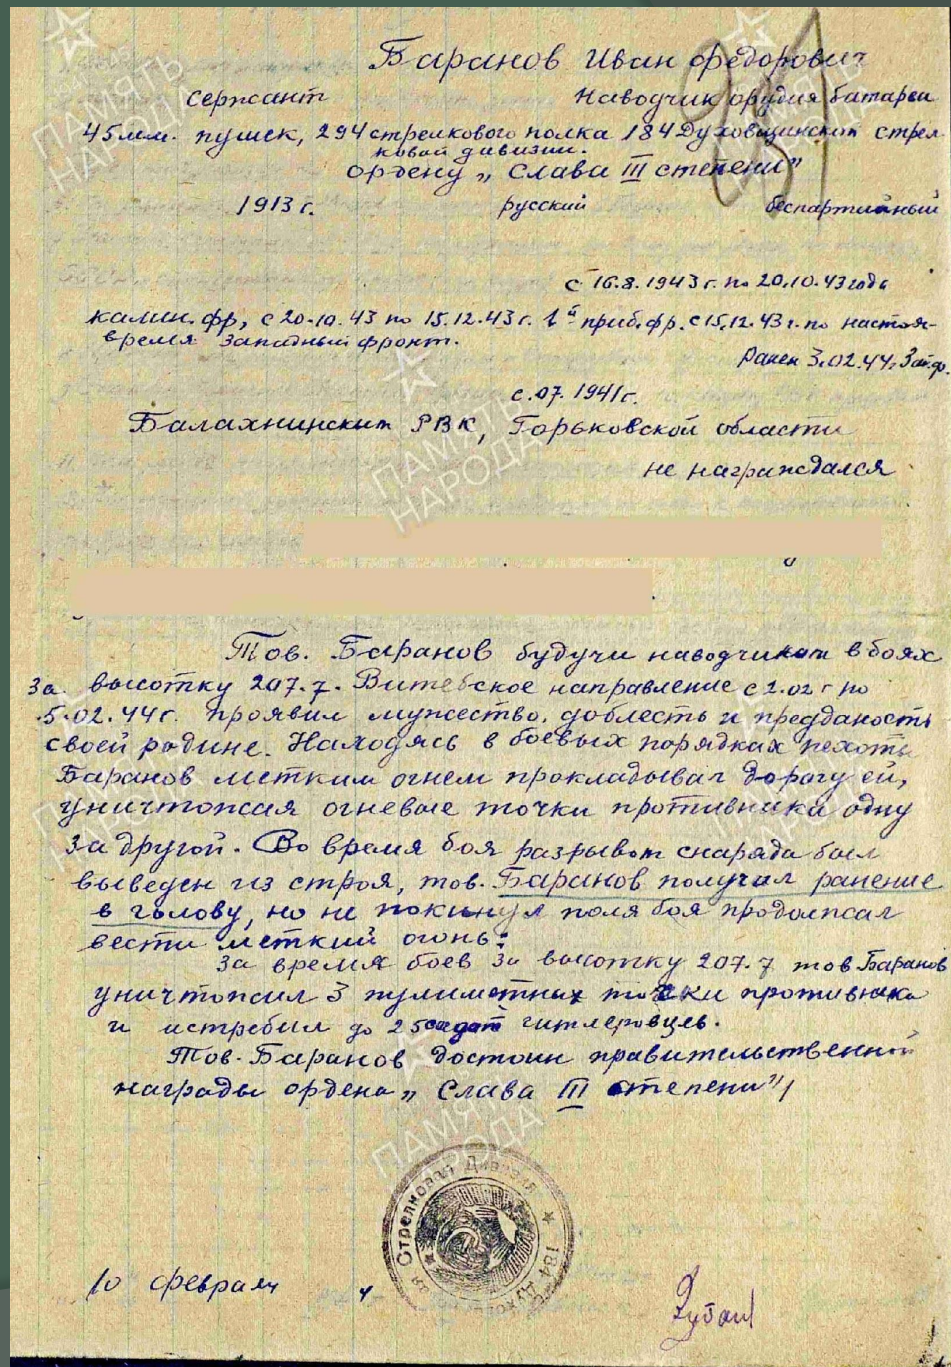 Баранов Иван Федорович
сержант Наводчик орудия батареи
45 мм. пушек, 294 стрелкового полка 184 Духовщинской стрел
ковой дивизии.
ордену „Слава III степени"
1913 г. русский беспартийный
с 16.8.1943 г. по 20.10.43 года
калин. фр, с 20.10.43 по 15.12.43 г. 1й приб. фр. с 15.12.43 г. по настоя-
время Западный фронт.
Ранен 3.02.44 г. Зап. ф.
с. 07. 1941 г.
Балахнинским РВК, Горьковской области
не награждался
Тов. Баранов будучи наводчиком в боях
за высотку 207.7. Витебское направление с 2.02 г по
5.02.44 г. проявил мужество, доблесть и предданость
своей родине. Находясь в боевых порядках пехоты
Баранов метким огнем прокладывал дорогу ей,
уничтожая огневые точки противника одну
за другой. Во время боя разрывом снаряда был
выведен из строя, тов. Баранов получил ранение
в голову, но не покинул поля боя продолжал
вести меткий огонь.
За время боев за высотку 207.7 тов Баранов
уничтожил 3 пулиметных точки противника
и истребил до 25 гитлеровцев.
Тов. Баранов достоин правительственной
награды ордена „Слава III степени"
Стрелковая Дивизия ★ 184
10 февраля 4
ПАМЯТЬ
НАРОДА